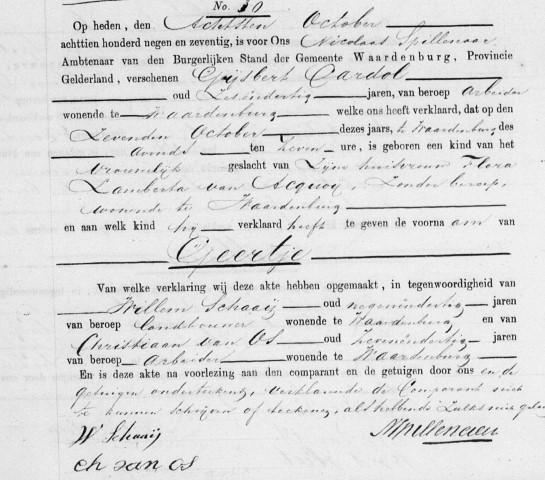 No. 30
Op heden, den Achtsten October
achttien honderd negen en zeventig, is voor Ons Nicolaas Spillenaar
Ambtenaar van den Burgerlijken Stand der Gemeente Waardenburg, Provincie
Gelderland, verschenen Gijsbert Cardol
oud Zesendertig jaren, van beroep Arbeider
wonende te Waardenburg welke ons heeft verklaard, dat op den
Zevenden October dezes jaars, te Waardenburg des
avonds ten zeven ure, is geboren een kind van het
Vrouwelijk geslacht van Zijne huisvrouw Flora
Lamberta van Acquoij, Zonder beroep,
wonende te Waardenburg
en aan welk kind hij verklaard heeft te geven de voorna am van
Geertje
Van welke verklaring wij deze akte hebben opgemaakt, in tegenwoordigheid van
Willem Schaaij oud negenendertig jaren
van beroep landbouwer wonende te Waardenburg en van
Christiaan van Os oud zevenendertig jaren
van beroep Arbeider wonende te Waardenburg
En is deze akte na voorlezing aan den comparant en de getuigen door ons en de
getuigen onderteekend, verklarende de Comparant niet
te kunnen schrijven of teekenen, als hebbende zulks niet geleerd
W Schaaij
NSpillenaar
Ch van Os